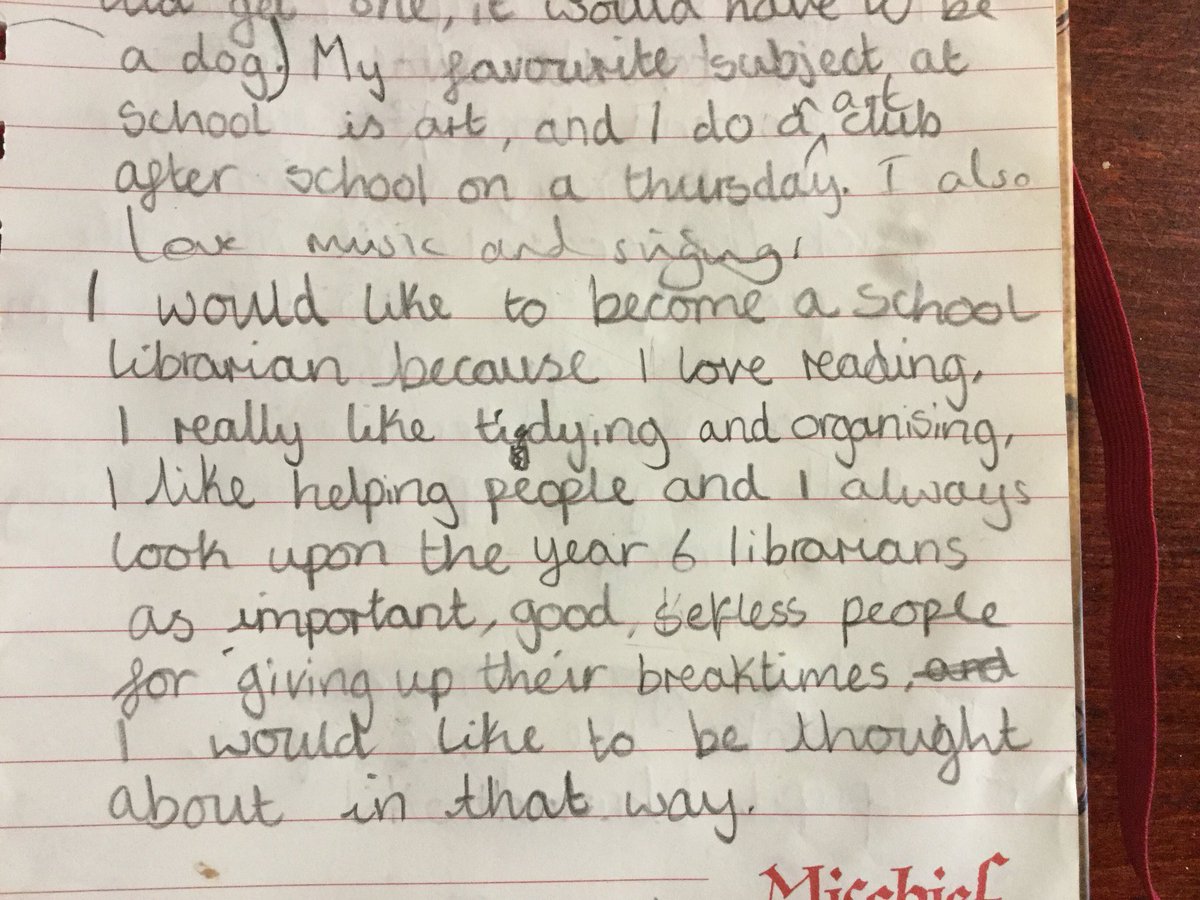 get one, it would have to be
a dog.) My favourite subject at
school is art, and I do a art club
after school on a thursday. I also
love music and singing,
I would like to become a school
librarian because I love reading,
I really like tidying and organising,
I like helping people and I always
look upon the year 6 librarians
as important, good, selfless people
for giving up their breaktimes, and
I would like to be thought
about in that way.
Mischief